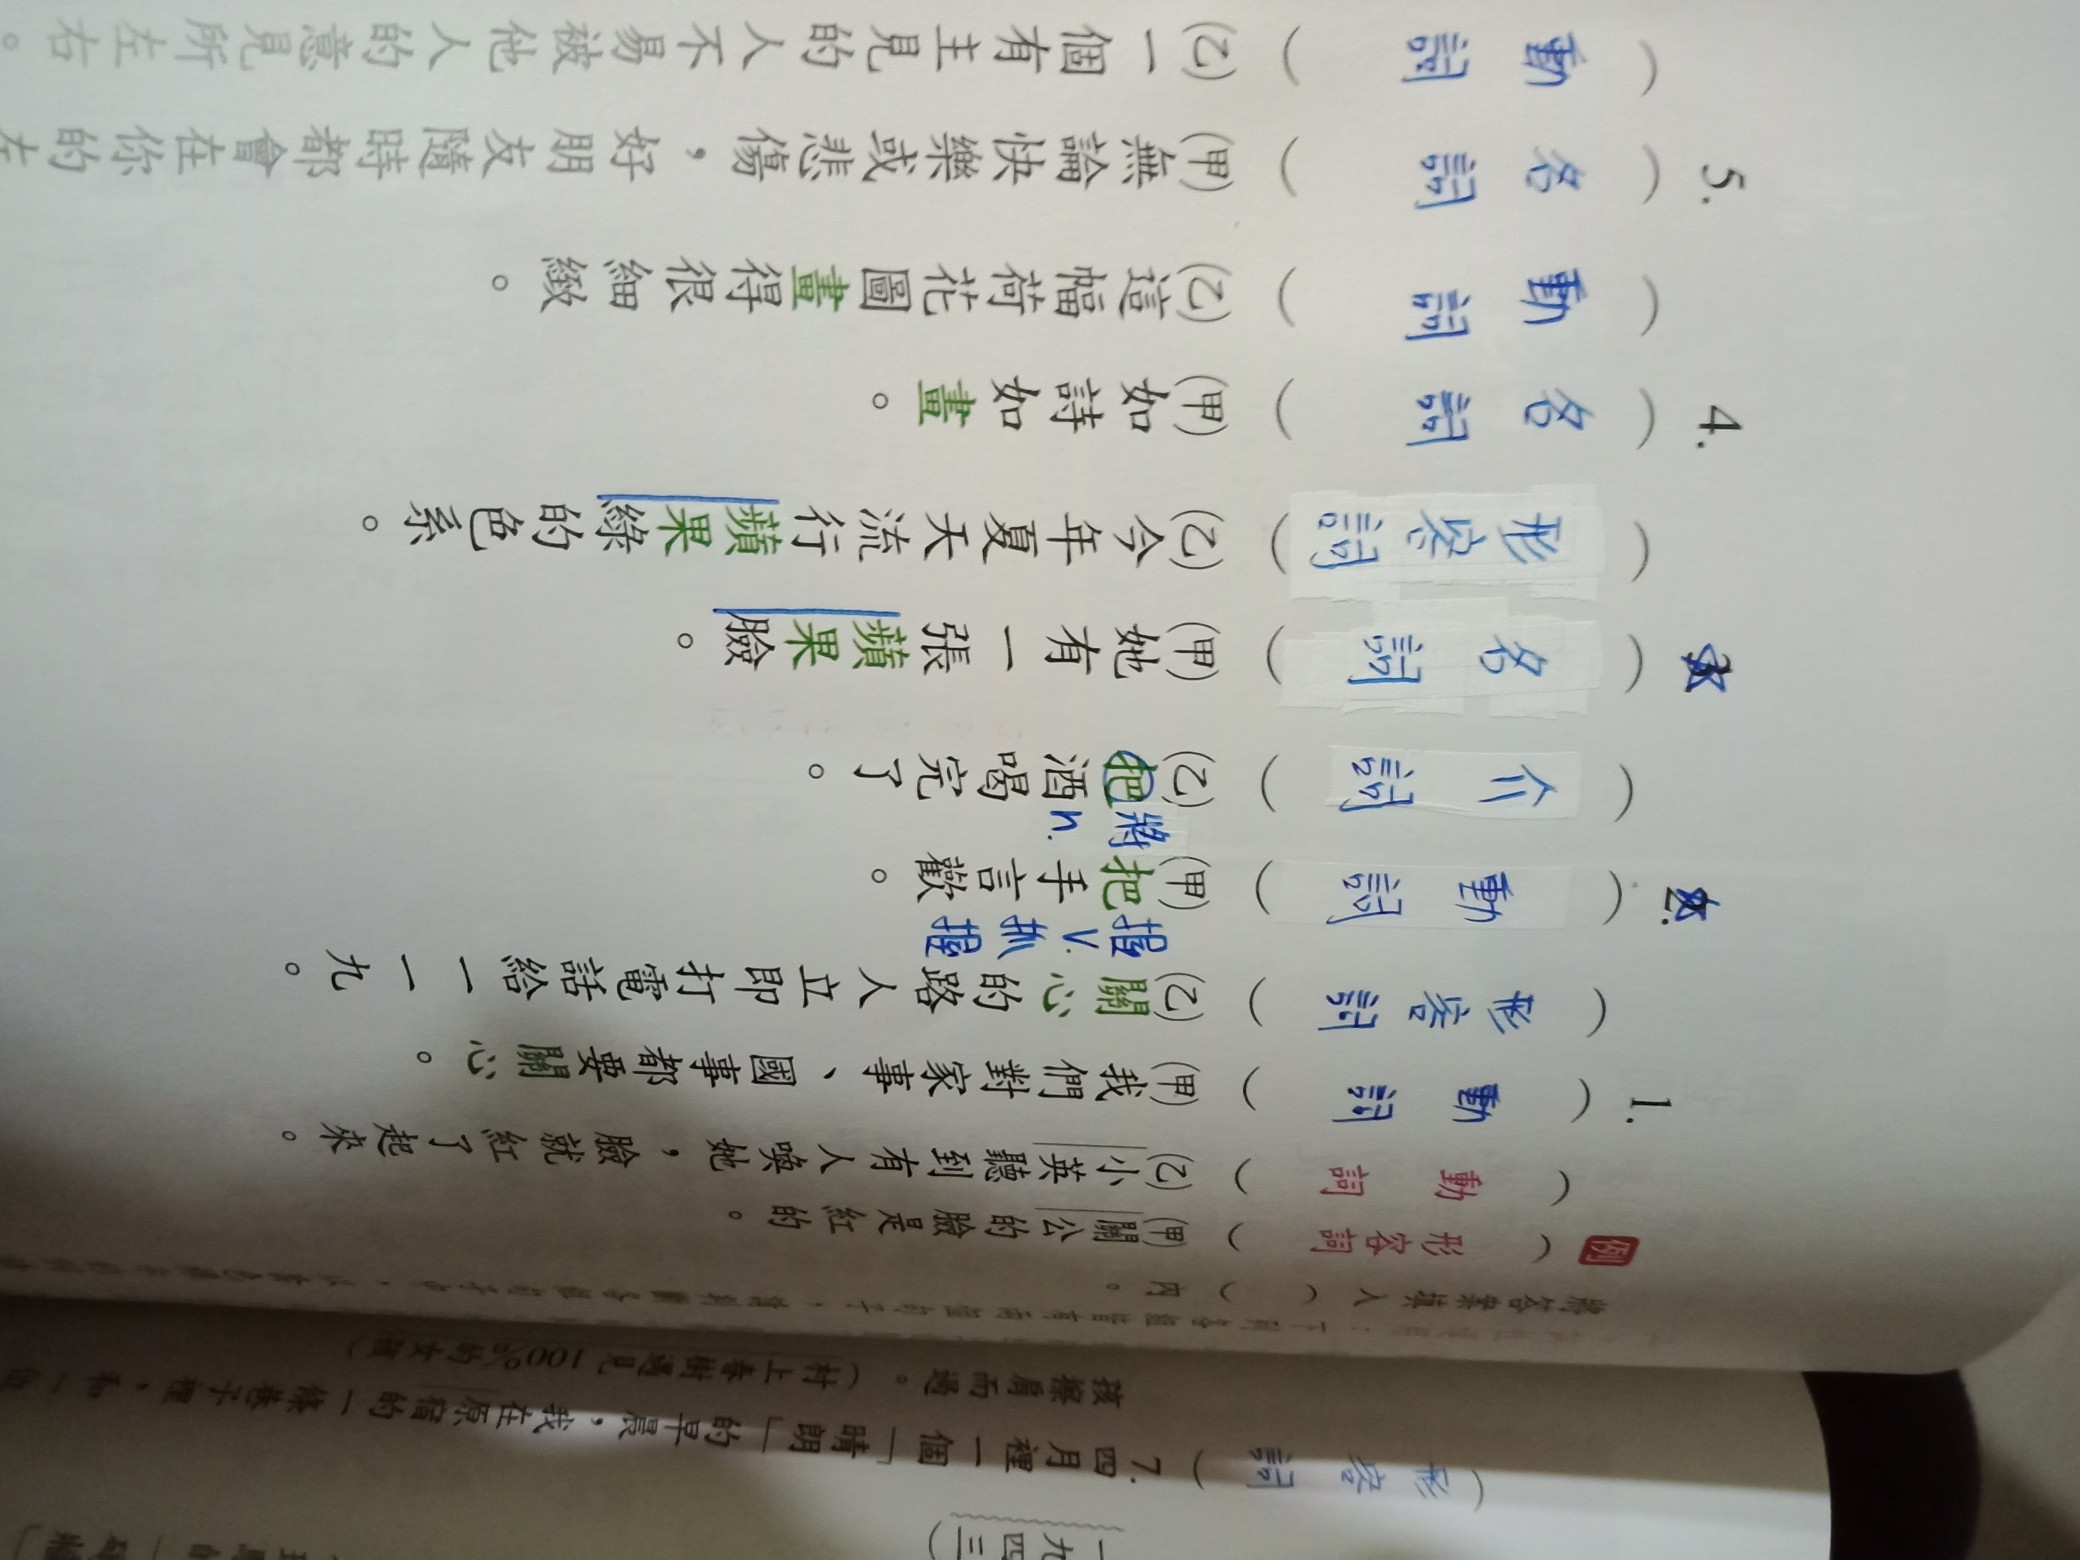 一九四三）
（形容詞）7.四月裡一個「晴朗」的早晨，我在原宿的一條巷子裡，和一個
孩擦肩而過。（村上春樹遇見100%的女孩）
將答案填入（ ）內。
例（形容詞）(甲)關公的臉是紅的。
（動詞）(乙)小英聽到有人喚她，臉就紅了起來。
1.（動詞）(甲)我們對家事、國事都要關心。
（形容詞）(乙)關心的路人立即打電話給一一九。
握 V. 抓握
2.（動詞）(甲)把手言歡。
將 n.
（介詞）(乙)把酒喝完了。
（名詞）(甲)她有一張蘋果臉。
（形容詞）(乙)今年夏天流行蘋果綠的色系。
4.（名詞）(甲)如詩如畫。
（動詞）(乙)這幅荷花圖畫得很細緻。
5.（名詞）(甲)無論快樂或悲傷，好朋友隨時都會在你的左
（動詞）(乙)一個有主見的人不易被他人的意見所左右。